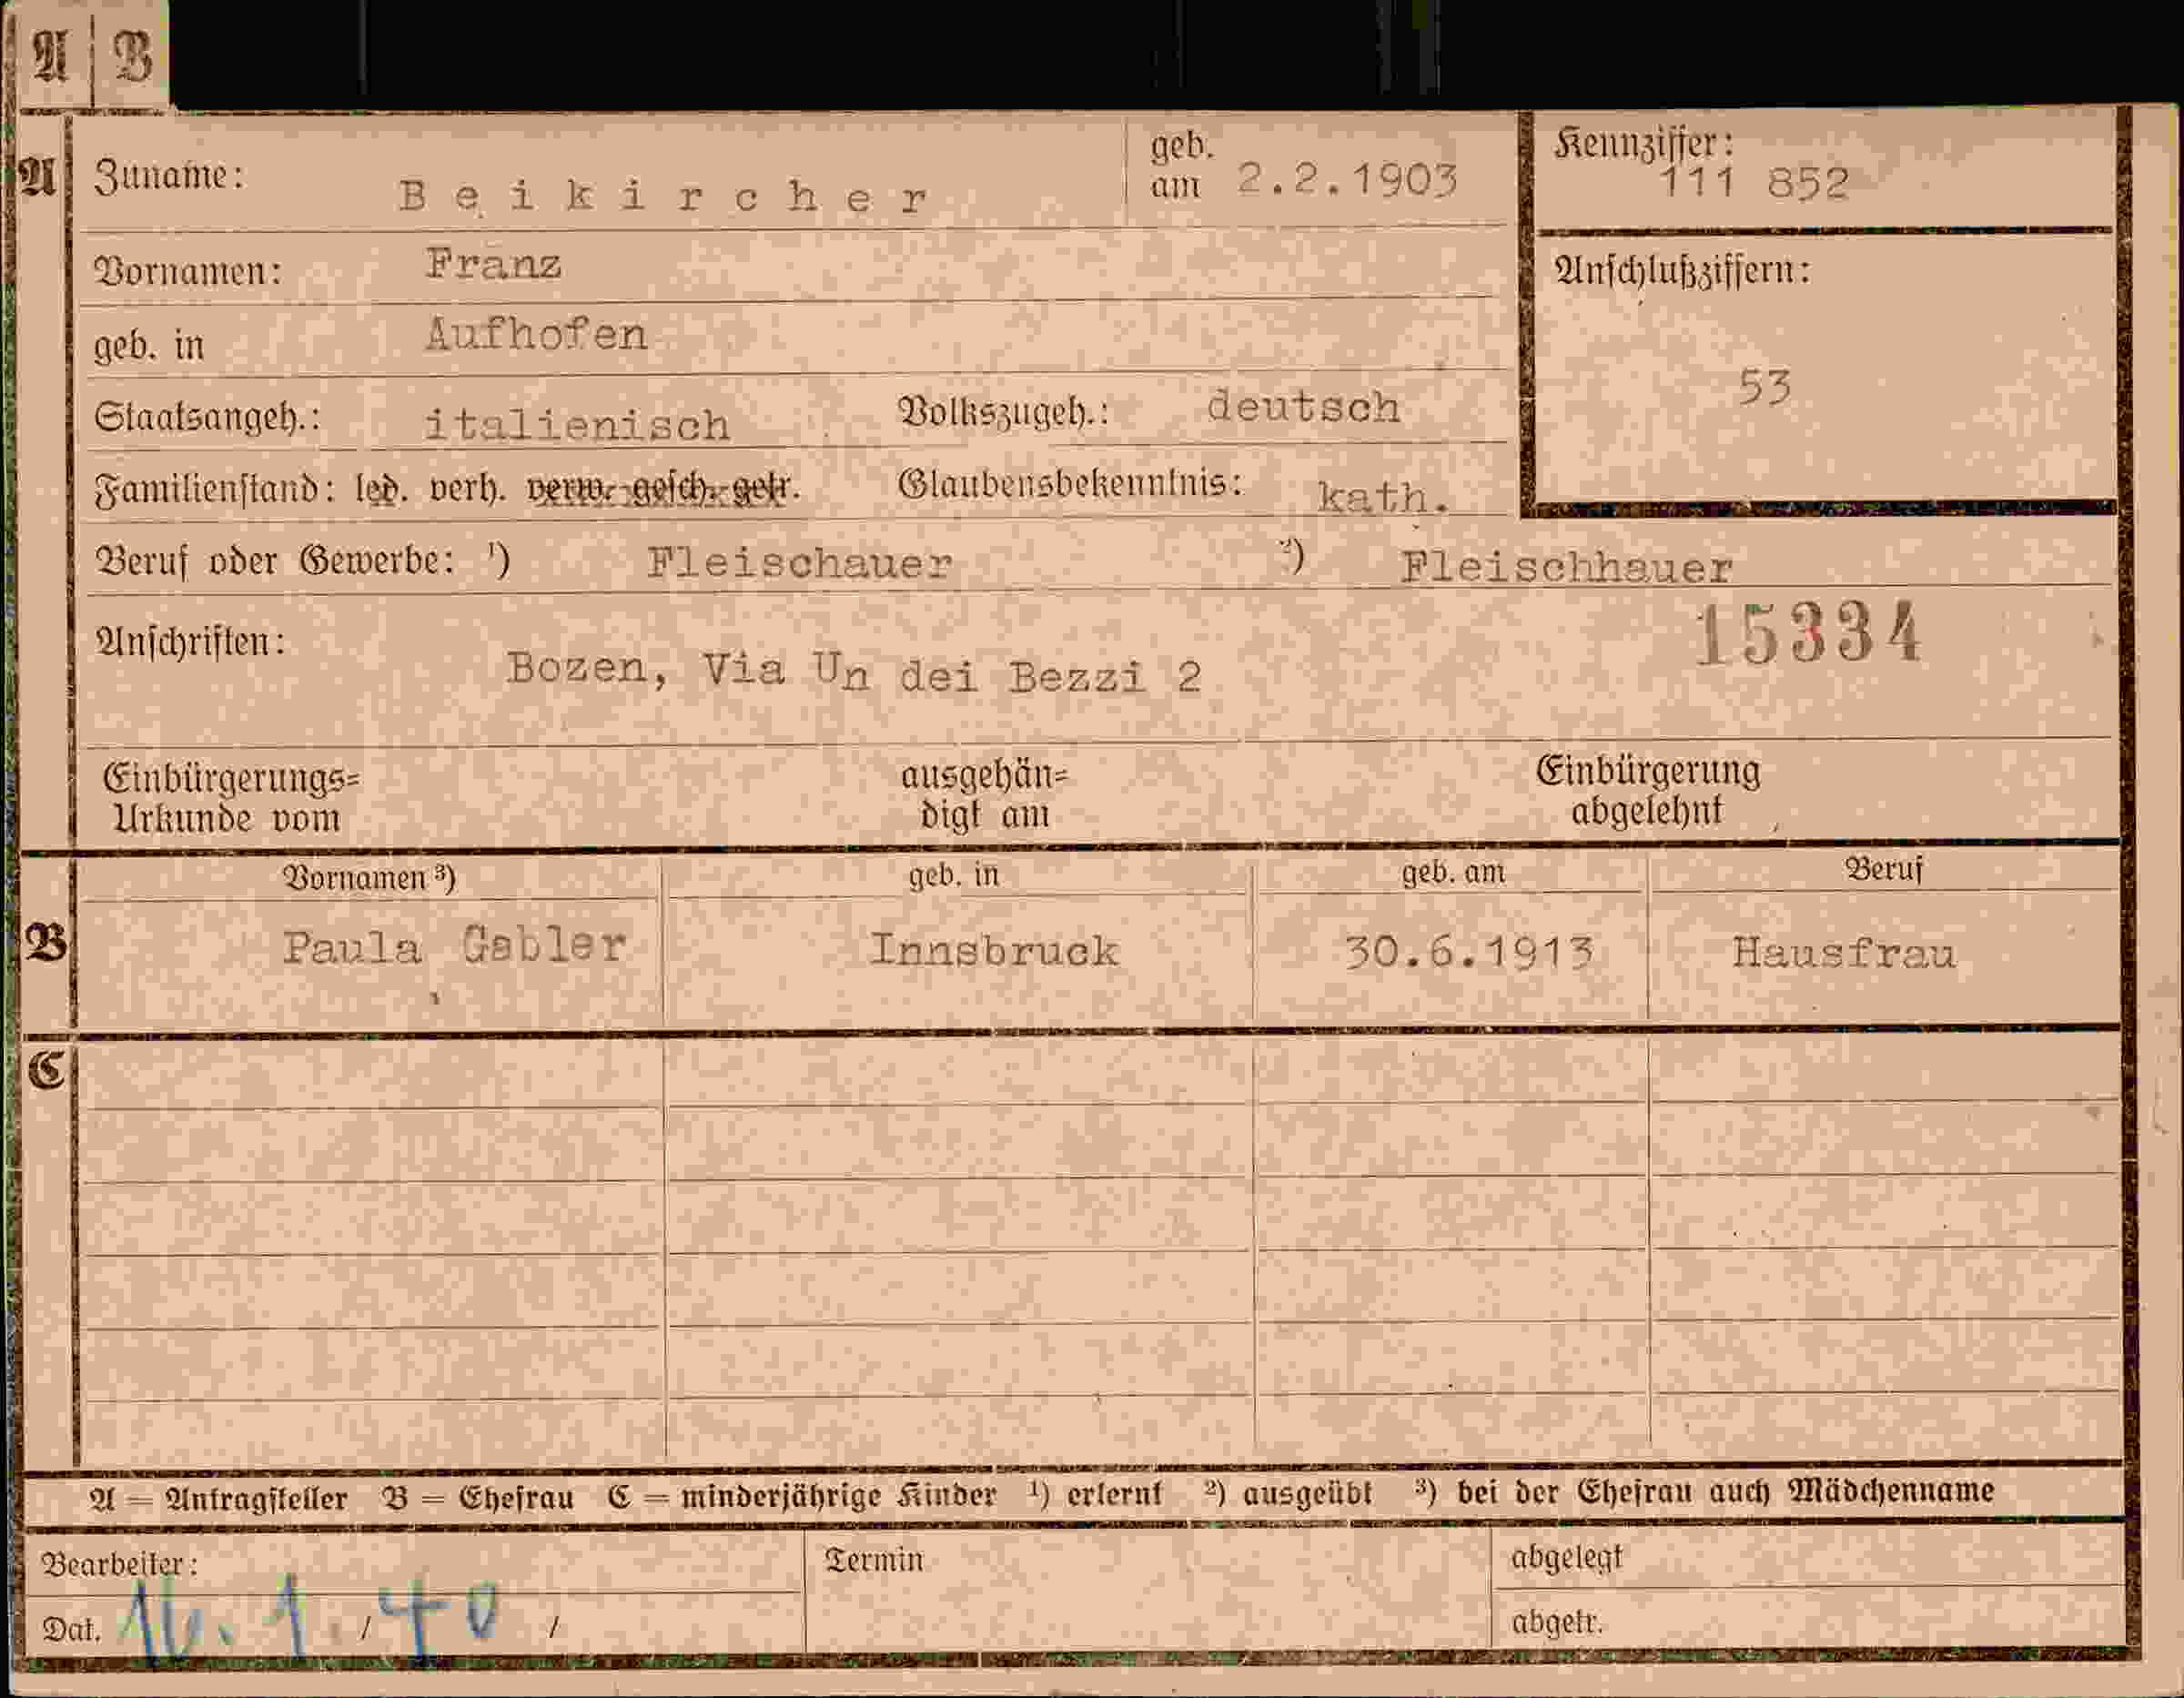 A B
A Zuname: Beikircher geb. am 2.2.1903 Kennziffer: 111 852
Vornamen: Franz Anschlußziffern:
geb. in Aufhofen 53
Staatsangeh.: italienisch Volkszugeh.: deutsch
Familienstand: led. verh. verw. gesch. getr. Glaubensbekenntnis: kath.
Beruf oder Gewerbe: ¹) Fleischauer ²) Fleischhauer
15334
Anschriften: Bozen, Via Un dei Bezzi 2
Einbürgerungs= ausgehän= Einbürgerung
Urkunde vom digt am abgelehnt
Vornamen ³) geb. in geb. am Beruf
B Paula Gabler Innsbruck 30.6.1913 Hausfrau
C
A = Antragsteller B = Ehefrau C = minderjährige Kinder ¹) erlernt ²) ausgeübt ³) bei der Ehefrau auch Mädchenname
Bearbeiter: Termin abgelegt
Dat. 16. 1. / 40 / abgetr.